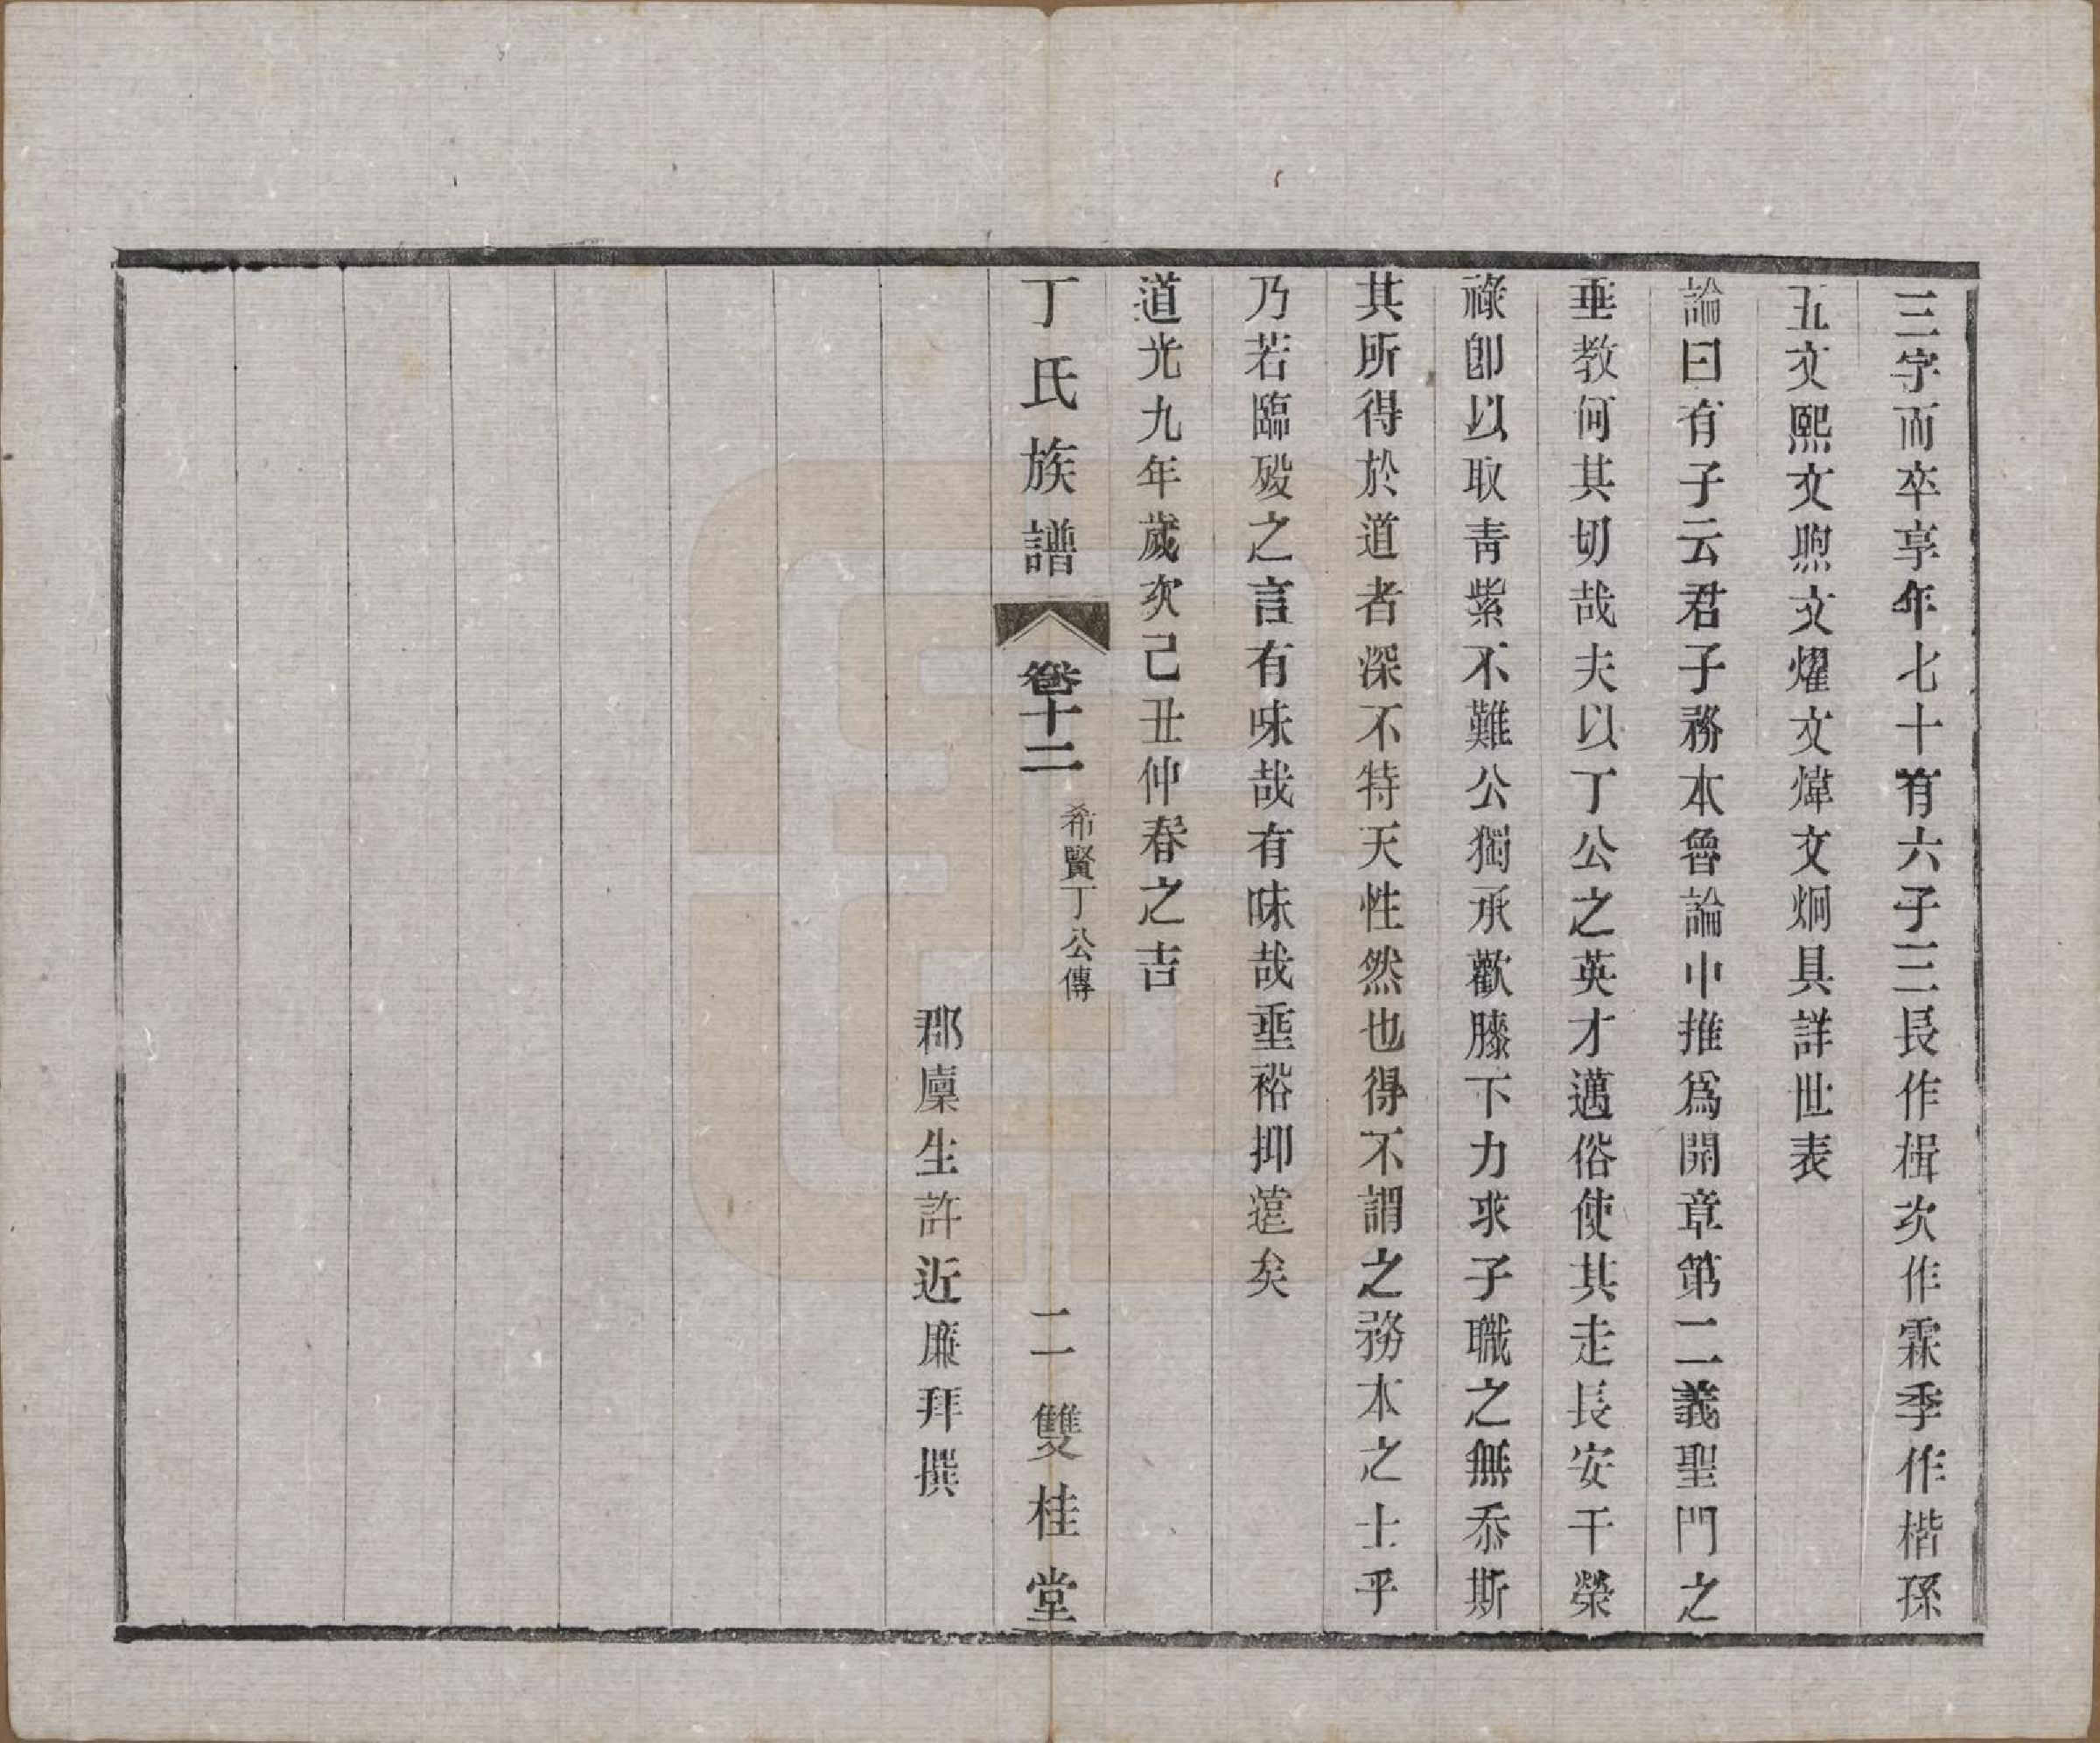 三字而卒享年七十有六子三長作楫次作霖季作楷孫
五文熙文煦文燿文煒文炯具詳世表
論曰有子云君子務本魯論中推爲開章第二義聖門之
垂教何其切哉夫以丁公之英才邁俗使其走長安干榮
祿卽以取靑紫不難公獨承歡膝下力求子職之無忝斯
其所得於道者深不特天性然也得不謂之務本之士乎
乃若臨歿之言有味哉有味哉垂裕抑遠矣
道光九年歲次己丑仲春之吉
丁氏族譜
卷十二
希賢丁公傳
二
雙桂堂
郡廩生許近廉拜撰